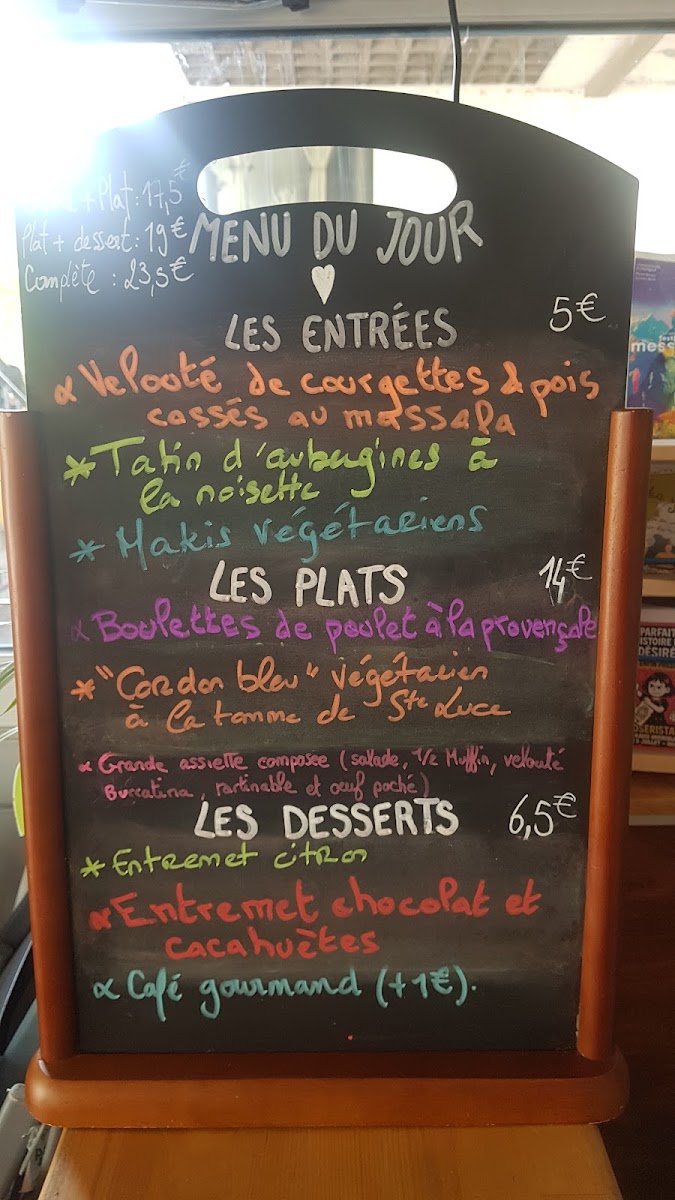 +Plat: 17,5€
Plat + dessert: 19€
Complète : 23,5€
MENU DU JOUR
LES ENTRÉES 5€
Velouté de courgettes & pois
cassés au massala
* Tatin d'aubergines à
la noisette
* Makis végétariens
LES PLATS 14€
Boulettes de poulet à la provençale
* "Cordon bleu" végétarien
à la tomme de Ste Luce
Grande assiette composée (salade, 1/2 Muffin, velouté
Burratina, tartinable et œuf poché)
LES DESSERTS 6,5€
* Entremet citron
Entremet chocolat et
cacahuètes
Café gourmand (+1€).
PARFAIT
HISTOIRE
DÉSIRÉ